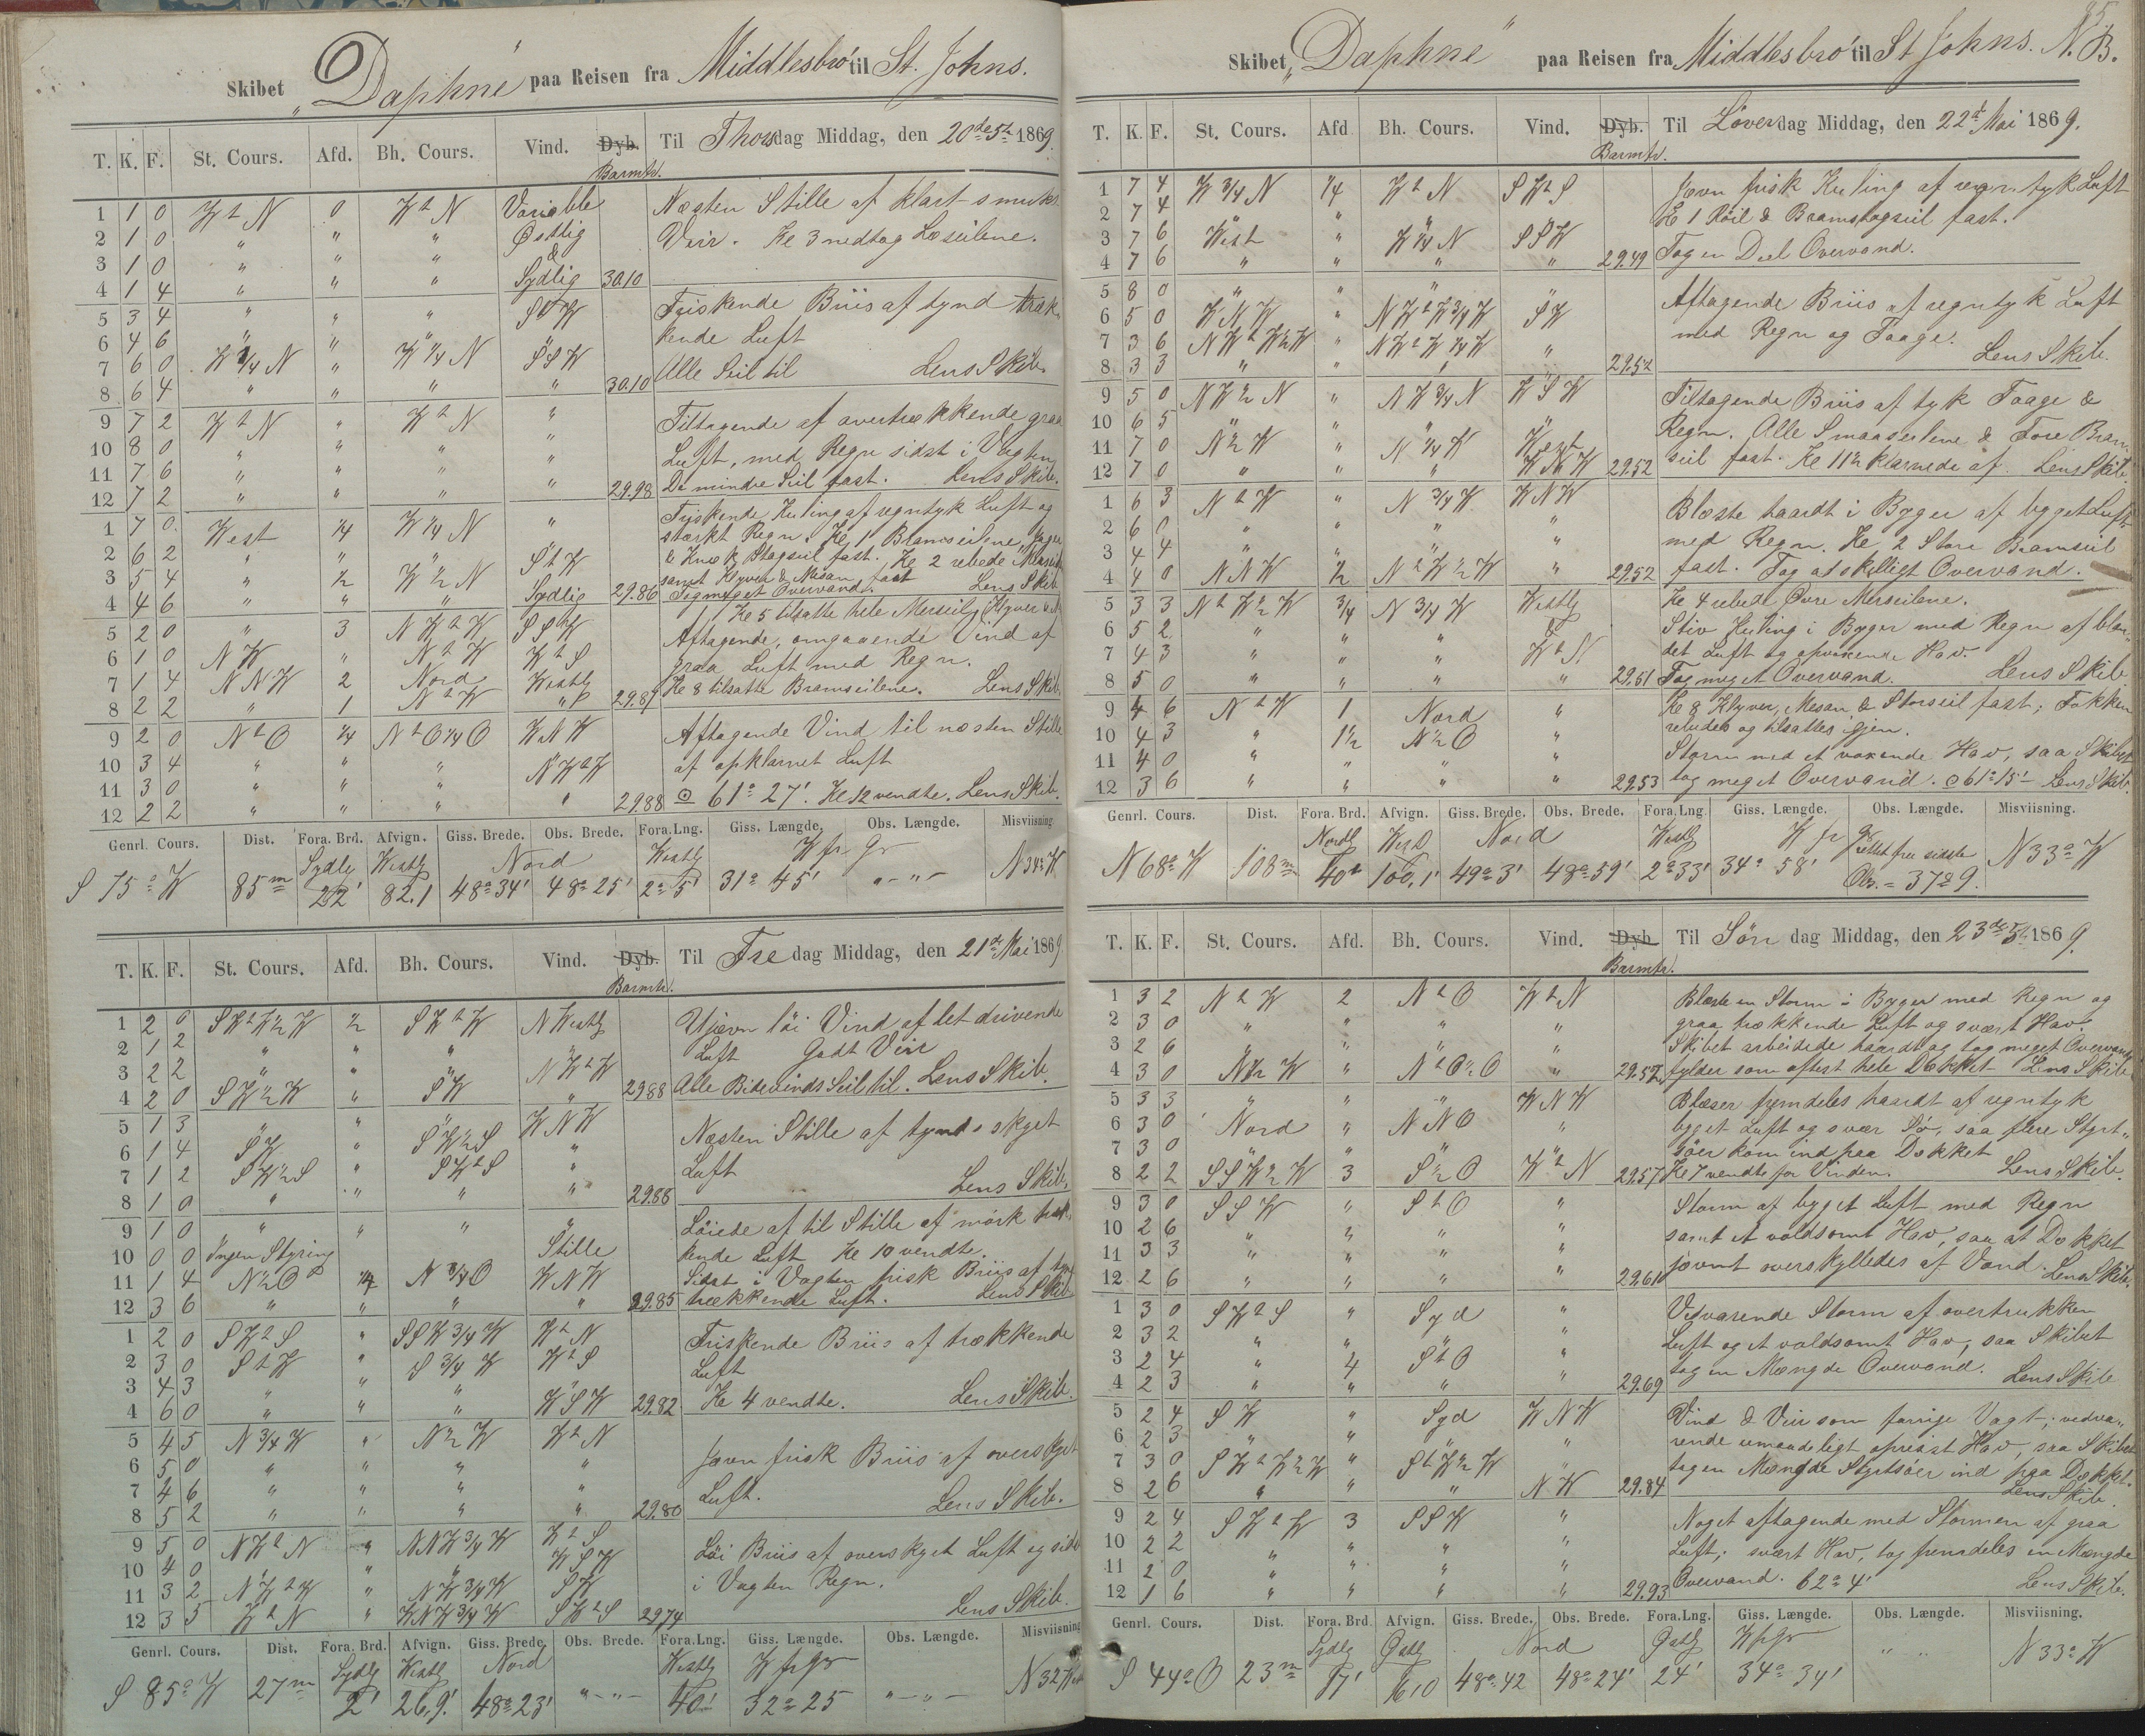 Skibet „Daphne" paa Reisen fra Middlesbro' til St. Johns.
T. K. F. St. Cours. Afd. Bh. Cours. Vind. Dyb. Barmtr. Til Thorsdag Middag, den 20de 5te 1869.
1 1 0 W t N 0 W t N Variable Næsten Stille af klart smukt
2 1 0 " " " Østlig Veir. Kl 3 nedtog Læseilene.
3 1 0 " " " &
4 1 4 " " " Sydlig 30.10
5 3 4 " " " S t W Friskende Briis af tynd træk-
6 4 6 " " " " kende Luft
7 6 0 W 3/4 N " W 1/4 N S S W Alle Seil til Lens Skib.
8 6 4 " " " " 30.10
9 7 2 W t N " W t N " Tiltagende af overtrækkende graa
10 8 0 " " " " Luft, med Regn sidst i Vagten
11 7 6 " " " "
12 7 2 " " " " 29.98 De mindre Seil fast. Lens Skib.
1 7 0 West 1/4 W 1/4 N " Friskende Kuling af regntyk Luft og
stærkt Regn. Kl 1 Bramseilene, Jager
2 6 2 " " " S t W & Kno k Stagseil fast. Kl 2 rebede Merseil
3 5 4 " 1/2 W 1/2 N samt Klyver & Mesan fast Lens Skib
4 4 6 " " " Sydlig 29.86 Tog meget Overvand.
Kl 5 tilsatte hele Merseil, Klyver
5 2 0 " 3 N W t W S S W Aftagende, omgaaende Vind af
6 1 0 N W " N t W W t S graa Luft med Regn.
7 1 4 N N W 2 Nord Westlg
8 2 2 " 1 N t W " 29.87 Kl 8 tilsatte Bramseilene. Lens Skib.
9 2 0 N t O 1/4 N t O 1/4 O W N W Aftagende Vind til næsten Stille
10 3 4 " " " N W t W af opklarnet Luft
11 3 0 " " "
12 2 2 " " " " 29.88 ☉ 61° 27'. Kl 12 vendte. Lens Skib.
Genrl. Cours. Dist. Fora. Brd. Afvign. Giss. Brede. Obs. Brede. Fora.Lng. Giss. Længde. Obs. Længde. Misviisning.
Sydlg Westlg Nord Westlg W fr Gr
S 75° W 85 m 22' 82.1 48° 34' 48° 25' 2° 5' 31° 45' " - " - N 34° W
T. K. F. St. Cours. Afd. Bh. Cours. Vind. Dyb. Barmtr. Til Fredag Middag, den 21de Mai 1869.
1 2 0 S W t W 1/2 W 1/2 S W t W N Westlg Ujævn løi Vind af let drivende
2 1 2 " " " " Luft Godt Veir
3 2 2 " " " N W t W
4 2 0 S W 1/2 W " S W " 29.88 Alle Bidevinds Seil til. Lens Skib.
5 1 3 " " " W N W Næsten Stille af tynd skyet
6 1 4 S W " S W 1/2 S "
7 1 2 S W 1/2 S " S W t S " Luft
8 1 0 " " " " 29.88 Lens Skib.
9 1 0 " " " " Løiede af til Stille af mørk træk-
10 0 0 Ingen Styring Stille kende Luft Kl 10 vendte.
11 1 4 N 1/2 O 1/4 N 3/4 O W N W Sidst i Vagten frisk Briis af
12 3 6 " " " " 29.85 trækkende Luft. Lens Skib
1 2 0 S W t S " S S W 3/4 W W t N Friskende Briis af trækkende
2 3 0 S t W " S 3/4 W W t S Luft
3 4 3 " " "
4 6 0 " " " W S W 29.82 Kl 4 vendte. Lens Skib.
5 4 5 N 3/4 W " N 1/2 W W t N Jævn frisk Briis af overskyet
6 5 0 " " " "
7 4 6 " " " " Luft.
8 5 2 " " " " 29.80 Lens Skib.
9 5 0 N W t N " N N W 3/4 W W t S Løi Briis af overskyet Luft og sidst
10 4 0 " " " W S W
11 3 2 N W t W " N W 3/4 W S W i Vagten Regn.
12 3 5 W t N " W N W 3/4 W S W t S 29.74 Lens Skib.
Genrl. Cours. Dist. Fora. Brd. Afvign. Giss. Brede. Obs. Brede. Fora.Lng. Giss. Længde. Obs. Længde. Misviisning
Sydlg Westlg Nord Westlg W fr Gr
S 85° W 27 m 2' 26.9' 48° 23' " - " - 40' 32° 25 " - " - N 32 W
85
Skibet „Daphne" paa Reisen fra Middlesbro' til St Johns. N. B.
T. K. F. St. Cours. Afd Bh. Cours. Vind. Dyb. Barmtr. Til Løverdag Middag, den 22de Mai 1869.
1 7 4 W 3/4 N 1/4 W t N S W t S Jævn frisk Kuling af regntyk Luft
2 7 4 " " " " Kl 1 Røil & Bramstagseil fast.
3 7 6 West " W 1/4 N S S W
4 7 6 " " " " 29.49 Tog en Deel Overvand.
5 8 0 " " " " Aftagende Briis af regntyk Luft
6 5 0 W N W " N W t W 3/4 W S W med Regn og Taage.
7 3 6 N W t W 1/2 W " N W t W 1/4 W "
8 3 3 " " " 29.52 Lens Skib.
9 5 0 N W 1/2 N " N W 3/4 N W S W Tiltagende Briis af tyk Taage &
10 6 5 " " " " Regn. Alle Smaaseilene & Fore Bram-
11 7 0 N 1/2 W " N 1/4 W West
12 7 0 " " " W N W 29.52 seil fast. Kl 11 1/2 klarnede af. Lens Skib.
1 6 3 N t W " N 3/4 W W N W Blæste haardt i Byger af byget Luft
2 6 0 " " " " med Regn. Kl 2 Store Bramseil
3 4 4 " " " "
4 4 0 N N W 1/2 N t W 1/2 W " 29.52 fast. Tog adskilligt Overvand.
5 3 3 N t W 1/2 W 3/4 N 3/4 W Westlg Kl 4 rebede Øvre Merseilene.
6 5 2 " " " & Stiv Kuling i Byger med Regn af blan-
7 4 3 " " " W t N. det Luft og opvoxende Hav.
8 5 0 " " " " 29.51 Tog meget Overvand. Lens Skib
9 4 6 N t W 1 Nord " Kl 8 Klyver, Mesan & Storseil fast; Fokken
10 4 3 " 1 1/2 N 1/2 O " rebedes og tilsattes igjen.
11 4 0 " " " " Storm med et voxende Hav, saa Skibet
12 3 6 " " " " 29.53 tog meget Overvand. ☉ 61° 15' - Lens Skib.
Genrl. Cours. Dist. Fora. Brd. Afvign. Giss. Brede. Obs. Brede. Fora.Lng. Giss. Længde. Obs. Længde. Misviisning.
Nordlg West Nord Westlg W fr Gr rettet fra sidste
N 68° W 108 m 40' 100.1' 49° 3' 48° 59' 2° 33' 34° 58' Obs. = 37° 9. N 33° W
T. K. F. St. Cours. Afd. Bh. Cours. Vind. Dyb Barmtr. Til Søndag Middag, den 23de 5te 1869.
1 3 2 N t W 2 N t O W t N Blæste en Storm i Byger med Regn og
2 3 0 " " " " graa trækkende Luft og svært Hav.
3 2 6 " " " " Skibet arbeidede haardt og tog meget Overvand
4 3 0 N 1/2 W " N t O 1/2 O " 29.57 fylder som oftest hele Dækket Lens Skib
5 3 3 " " " W N W Blæser fremdeles haardt af regntyk
6 3 0 Nord " N N O " byget Luft og svær Sø, saa flere Styrt-
7 3 0 " " " søer kom ind paa Dækket
8 2 2 S S W 1/2 W 3 S 1/2 O W t N 29.57 Kl 7 vendte for Vinden. Lens Skib.
9 3 0 S S W " S t O " Storm af byget Luft med Regn
10 2 6 " " " " samt et voldsomt Hav, saa at Dækket
11 3 3 " " " "
12 2 6 " " " " 29.61 jævnt overskylledes af Vand. Lens Skib.
1 3 0 S W t S " Syd " Vedvarende Storm af overtrukken
2 3 2 " " " " Luft og et voldsomt Hav, saa Skibet
3 2 4 " 4 S t O "
4 2 3 " " " " 29.69 tog en Mængde Overvand. Lens Skib
5 2 4 S W " Syd W N W Vind & Veir som forrige Vagt; vedva-
6 2 3 " " " " rende umaadeligt oprørst Hav, saa Skibet
7 3 0 S W t W 1/2 W " S t W 1/2 W " tog en Mængde Styrtsøer ind paa Dækket.
8 2 6 " " " N W 29.84 Lens Skib.
9 2 4 S W t W 3 S S W " Noget aftagende med Stormen af graa
10 2 2 " " " " Luft; svært Hav, tog fremdeles en Mængde
11 2 0 " " " "
12 1 6 " " " " 29.93 Overvand. 62° 4' Lens Skib.
Genrl. Cours. Dist. Fora. Brd Afvign. Giss. Brede. Obs. Brede. Fora.Lng. Giss. Længde. Obs. Længde. Misviisning.
Sydlg Østlg Nord Østlg W fr Gr
S 44° O 23 m 17' 16.0 48° 42 48° 24' 24' 34° 34' " " N 33° W